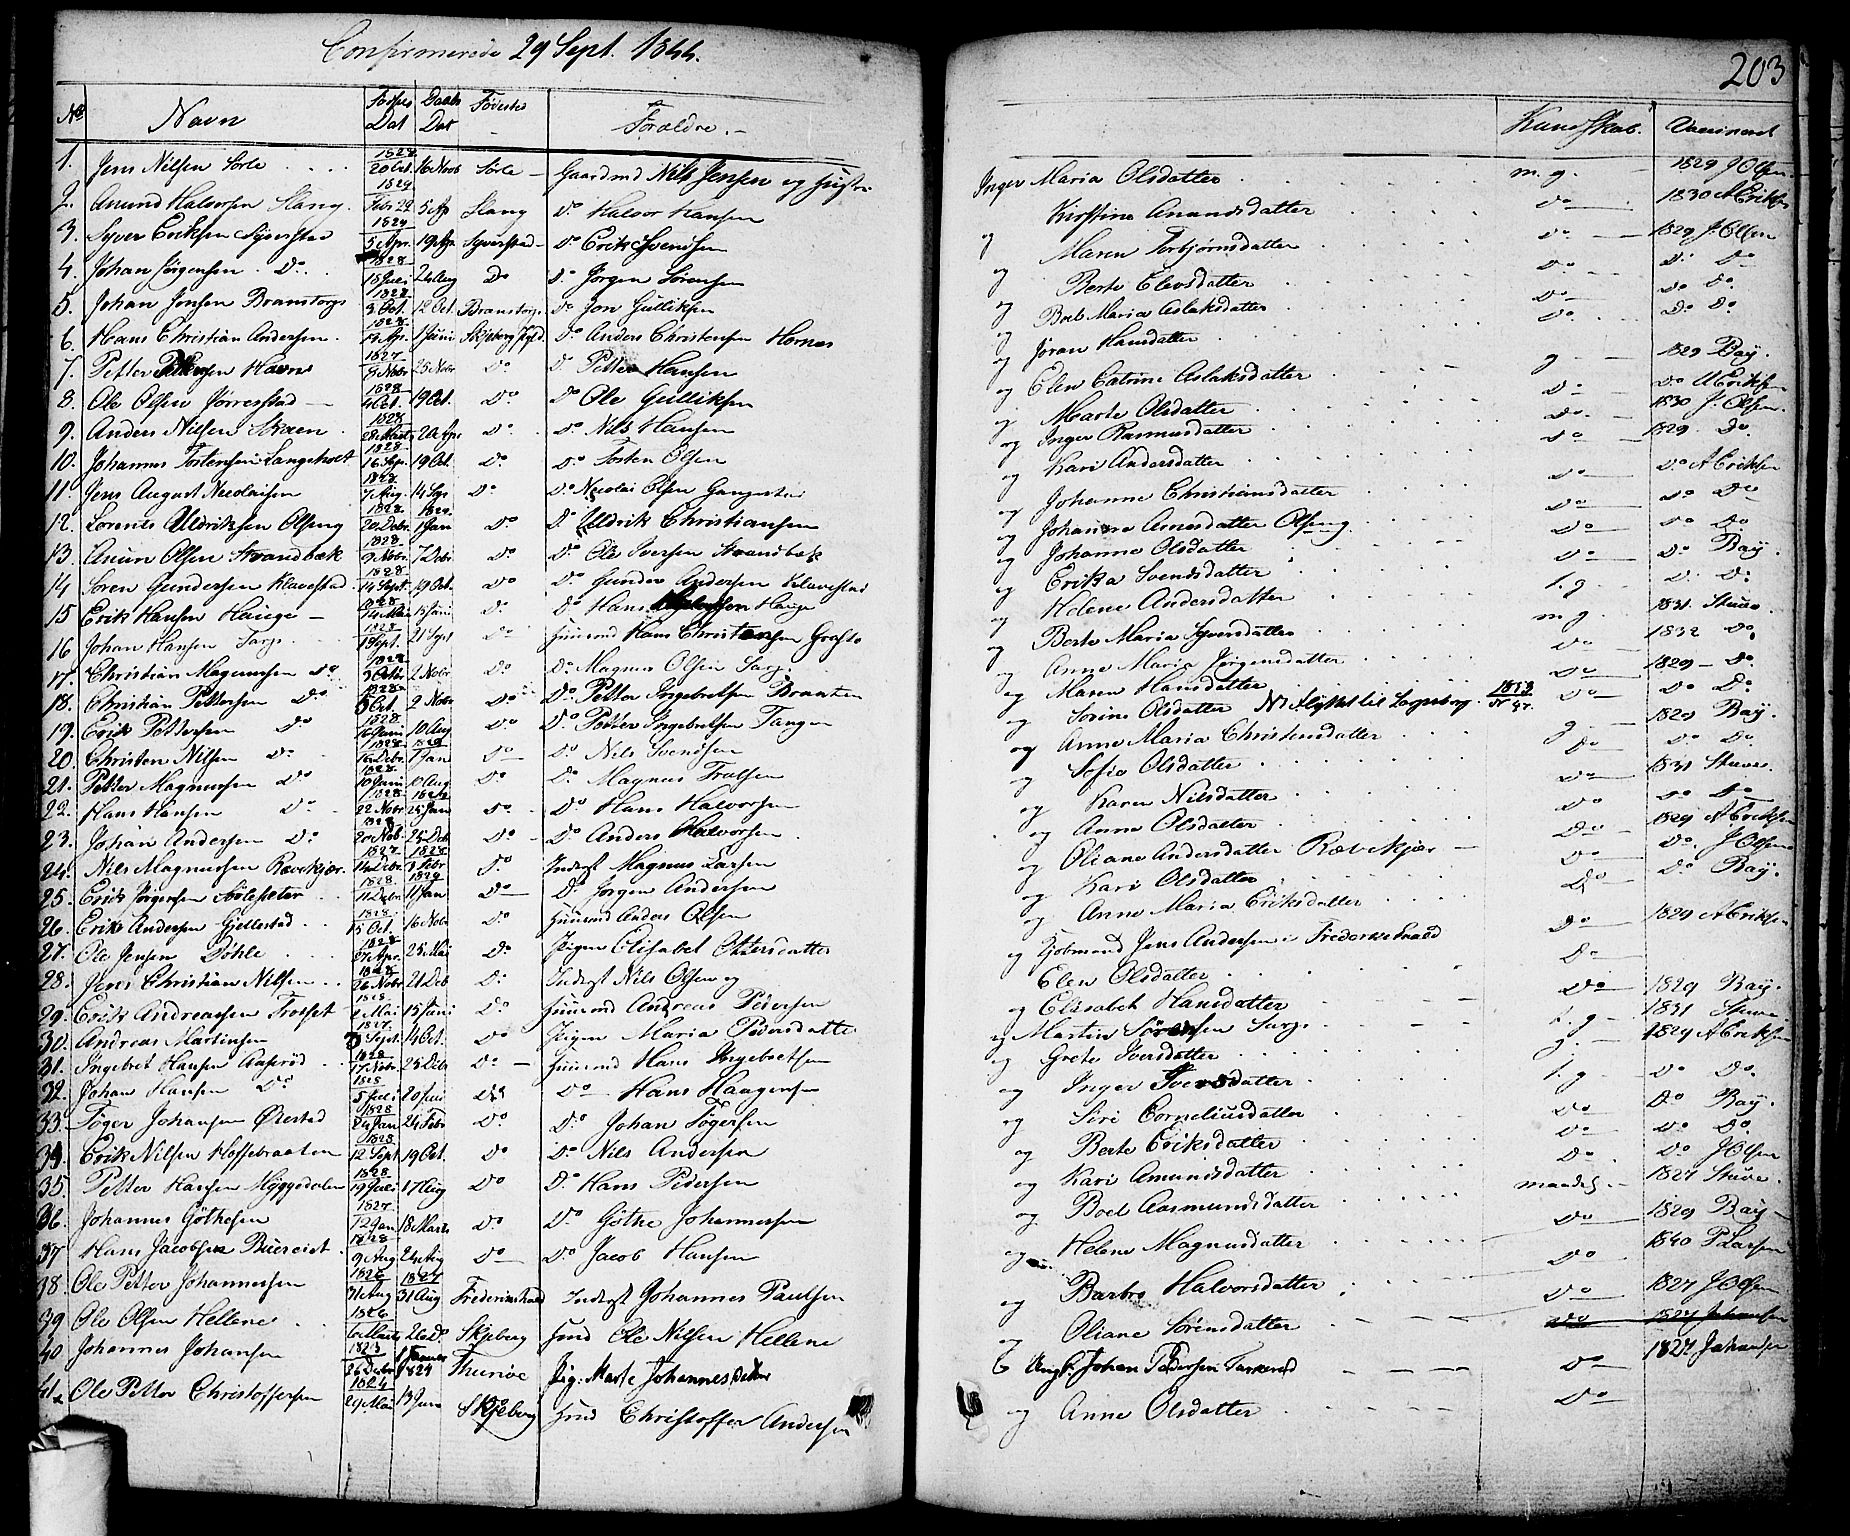 Confirmerede 29 Sept. 1844.
203
No Navn Fødsels Dat Daabs Dat Fødested Forældre. Kundskab. Vaccineret
1. Jens Nilsen Sørle 1828 20 Oct. 16 Novb Sørle Gaardmd Nils Jensen og Hustr. Inger Maria Olsdatter m.g. 1829 J. Olsen
2. Amund Halvorsen Slang 1829 Febr 22 5 Ap Slang Do Halvor Hansen og Kirstine Amundsdatter Do 1830 A Eriksen
3. Syver Eriksen Syverstad 1829 5 Apr. 19 Ap Syverstad Do Erik Svendsen og Maren Torbjørnsdatter Do 1829 J. Olsen
4. Johan Jørgensen Do 1828 18 Juli 24 Aug Do Do Jørgen Sørensen og Berte Elevsdatter Do Do Do
5. Johan Jonsen Branstorp 1828 3 Oct. 12 Oct. Branstorp Do Jon Gulliksen og Boel Maria Aslaksdatter Do Do Do
6. Hans Christian Andersen 1828 14 Ap. 1 Juni Skjeberg Do Anders Christensen Hornes og Jøran Hansdatter Do Do Do
7. Petter Pettersen Havn 1827 8 Nobr 25 Nobr Do D. Petter Hansen og Elen Catrine Aslaksdatter g 1829 Bay.
8. Ole Olsen Jørrestad 1828 4 Oct. 19 Oct. Do Do Ole Gulliksen og Marte Olsdatter Do Do A Eriksen
9. Anders Nilsen 1828 28 Marts 20 Apr. Do Do Nils Hansen og Inger Rasmusdatter Do 1830 J. Olsen
10. Johannes Tostensen Langeholt 1828 16 Sep. 19 Oct. Do Do Tosten Olsen og Kari Andersdatter Do 1829 Do
11. Jens August Nicolaisen 1828 7 Aug. 14 Sep Do Do Nicolai Olsen og Johanne Christiansdatter Do Do A Eriksen
12. Lorents Uldriksen Olseng 1828 20 Debr. 1829 1 Jan Do D. Uldrik Christiansen og Johanne Arnesdatter Olseng. Do Do Do
13. Anun Olsen Strandbæk 1828 9 Nobr. 7 Debr Do Do Ole Iversen Strandbæk og Johanne Olsdatter Do Do Do
14 Søren Gundersen Klavestad 1828 14 Sept. 19 Oct. Do Do Gunder Andersen Klavestad og Erika Svendsdatter Do Do Bay.
15 Erik Hansen Hauge 1828 14 Mai 15 Juni Do Do Hans Hauge og Helene Andersdatter t.g. D. Do
16 Johan Hansen 1828 1 Sept. 21 Sept Do Huusmd Hans Christensen og Berte Maria Syversdatter m.g. 1831 Stuve
17. Christian Magnussen Do 1828 3 Octbr 2 Nobr Do Do Magnus Olsen og Anne Maria Jørgensdatter Do 1832 Do
18. Christian Pettersen Do 1828 5 Oct. 2 Nobr Do Do Petter Ingebretsen Braaten og Maren Hansdatter Do 1829 Do
19. Erik Pettersen Do 1828 16 Juni 10 Aug Do Do Petter Ingebretsen Tangen og Sorine Olsdatter NB flyttet til 1858 Nr 47. Do Do Do
20. Christen Nilsen Do 1828 16 Debr. 1829 1 Jan Do Do Nils Svendsen og Anne Maria Christensdatter g 1829 Bay.
21. Petter Magnussen Do 1828 10 Juni 10 Aug Do Do Magnus Trulsen og Sofie Olsdatter Do Do Do
22. Hans Hansen Do 1828 22 Nobr 1829 25 Jan Do Do Hans Halvorsen og Karen Nilsdatter Do 1831 Stuve.
23. Johan Andersen Do 1828 20 Nob. 25 Deb Do Do Anders Halvorsen og Anne Olsdatter Do Do Do
24. Nils Magnussen Rævekjær. 1827 14 Debr 1828 3 Febr Do Inderst Magnus Larsen og Oliane Andersdatter Rævekjær Do 1829 A Eriksen
25. Erik Jørgensen 1828 11 Debr. 1829 11 Jan Do Do Jørgen Andersen og Kari Olsdatter Do Do. J Olsen
26. Erik Andersen Gjellestad 1828 15 Oct. 16 Nobr Do Huusmd Anders Olsen og Anne Maria Eriksdatter Do Do Bay.
27. Ole Jensen Døhle 1828 27 Apr. 25 Mai Do Pigen Elisabet Ottersdatter og Kjøbmand Jens Andersen i Frederikstad Do 1829 A Eriksen
28. Jens Christian Nilsen 1828 26 Nobr 21 Deb D. Inderst Nils Olsen og Elen Olsdatter Do
29. Erik Andreassen 1828 2 Mai 15 Juni Do Huusmd Andreas Pedersen og Elisabet Hansdatter Do 1829 Bay.
30. Andreas Martinsen 1827. Sept. 14 Oct. Do Pigen Maria Pedersdatter og Martin Sørensen t.g. 1831 Stuve
31. Ingebret Hansen Aaserød 1828 17 Nobr. 25 Debr Do Huusmd Hans Ingebretsen og Grete Iversdatter g. 1829 A Eriksen
32. Johan Hansen Do 1828 5 Juli 20 Juli Do Do Hans Haagensen og Inger Iversdatter t.g Do Do
33. Tøger Johansen Ørestad 1828 24 Jan 24 Febr Do Do Johan Tøgersen og Siri Corneliusdatter Do Do Bay.
34. Erik Nilsen Hoffebraaten 1828 12 Sept 19 Oct. Do Do Nils Andersen og Berte Eriksdatter Do Do Do
35. Petter Hansen Myggedalen 1828 19 Juli 17 Aug Do Do Hans Pedersen og Kari Amundsdatter Do Do J. Olsen
36. Johannes Gøthesen 1827. 12 Jan 18 Marts Do Do Gøthe Johannessen og Boel Aasmundsdatter maadelig 1827 Stuve.
37. Hans Jacobsen Buerqvist 1828 9 Aug 24 Aug Do Do Jacob Hansen og Helene Magnusdatter Do 1829 Bay
38. Ole Petter Johannessen 1826 31 Aug 1827 31 Aug Frederikshald Inderst Johannes Paulsen og Barbro Halvorsdatter Do 1840 P Larsen
39 Ole Olsen Hellene 1826 26 Do Skjeberg Hmd Ole Nilsen Hellene og Oliane Sørensdatter Do 1827 J. Olsen
40 Johannes Johansen 1823 26 Debr 1824 Thunøe Pig. Marte Johannesdatter & Ungk. Johan Pedersen Do 1827 Johansen
41. Ole Petter Christoffersen 1824 29 Mai 13 Juni Skjeberg Hmd Christoffer Andersen og Anne Olsdatter Do 1827 Johansen